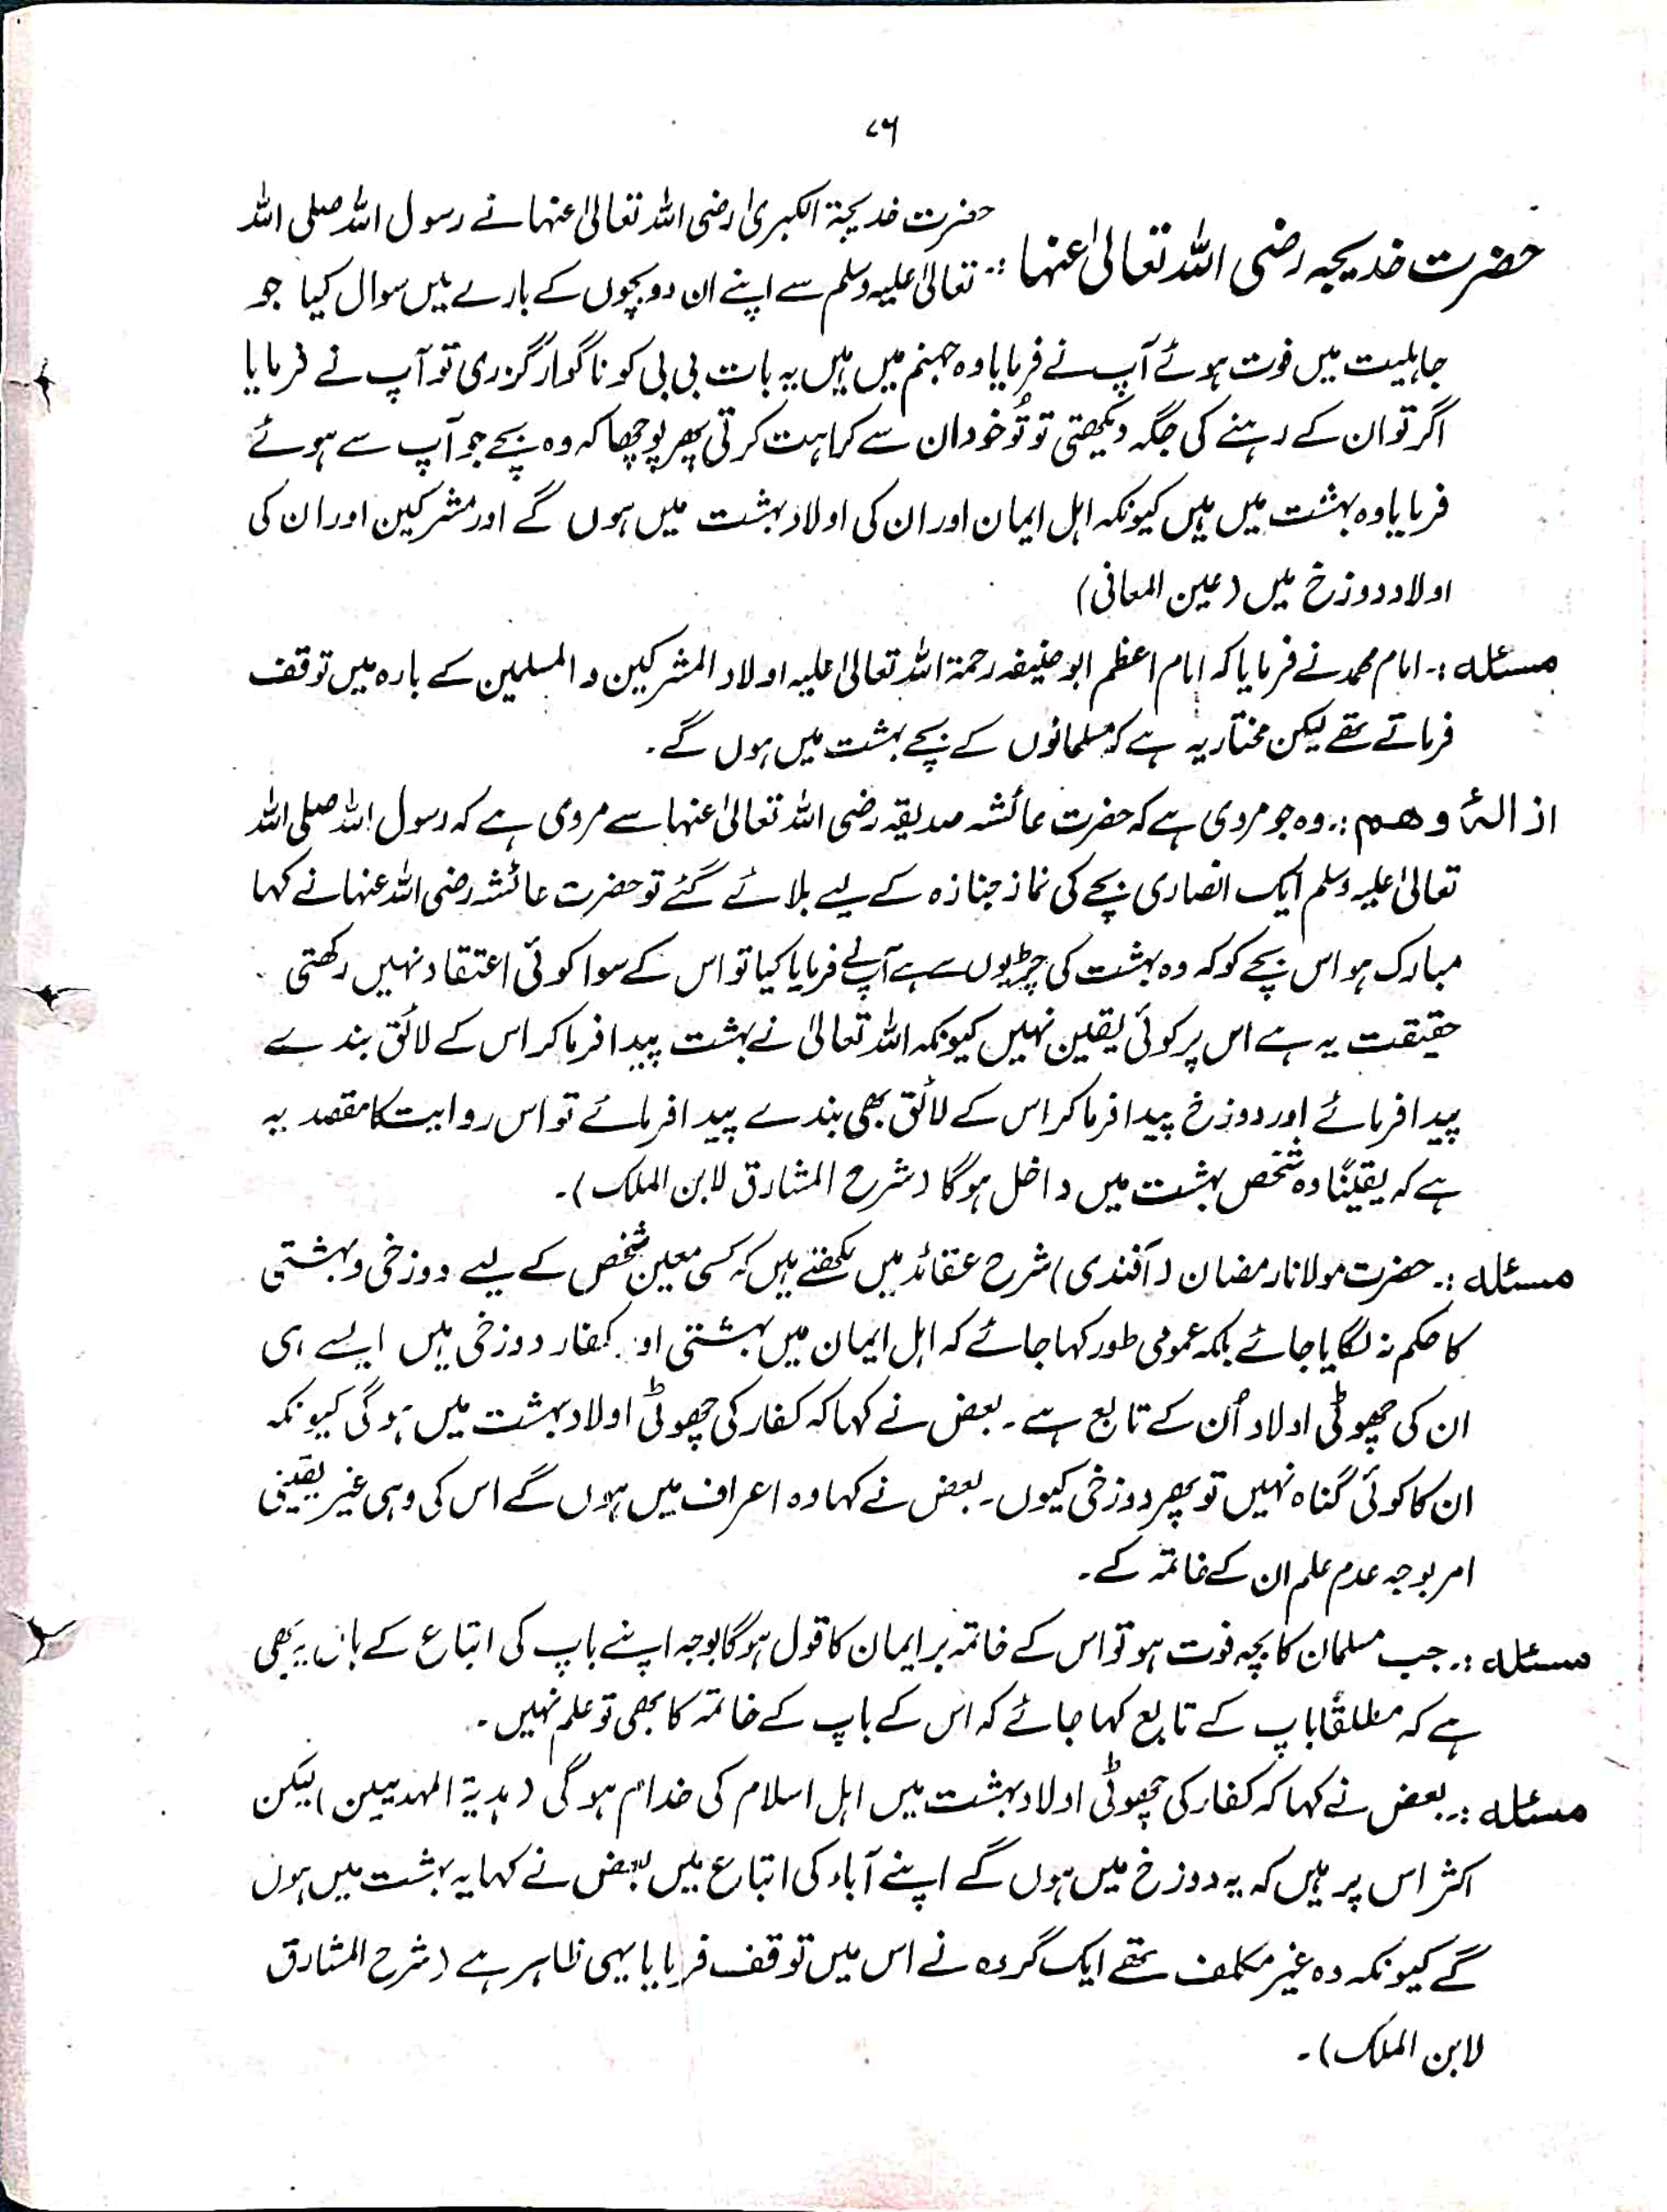 ۷۶
حضرت خدیجہ رضی اللہ تعالیٰ عنہا :۔ حضرت خدیجۃ الکبریٰ رضی اللہ تعالیٰ عنہا نے رسول اللہ صلی اللہ
تعالیٰ علیہ وسلم سے اپنے ان دو بچوں کے بارے میں سوال کیا جو
جاہلیت میں فوت ہوئے آپ نے فرمایا وہ جہنم میں ہیں یہ بات بی بی کو ناگوار گزری تو آپ نے فرمایا
اگر تو ان کے رہنے کی جگہ دیکھتی تو تُو خود ان سے کراہت کرتی پھر پوچھا کہ وہ بچے جو آپ سے ہوئے
فرمایا وہ بہشت میں ہیں کیونکہ اہل ایمان اور ان کی اولاد بہشت میں ہوں گے اور مشرکین اور ان کی
اولاد دوزخ میں (عین المعانی)
مسئلہ :۔ امام محمد نے فرمایا کہ امام اعظم ابو حنیفہ رحمۃ اللہ تعالیٰ علیہ اولاد المشرکین و المسلمین کے بارہ میں توقف
فرماتے تھے لیکن مختار یہ ہے کہ مسلمانوں کے بچے بہشت میں ہوں گے۔
ازالۂ وھم :۔ وہ جو مروی ہے کہ حضرت عائشہ صدیقہ رضی اللہ تعالیٰ عنہا سے مروی ہے کہ رسول اللہ صلی اللہ
تعالیٰ علیہ وسلم ایک انصاری بچے کی نماز جنازہ کے لیے بلائے گئے تو حضرت عائشہ رضی اللہ عنہا نے کہا
مبارک ہو اس بچے کو کہ وہ بہشت کی چڑیوں سے ہے آپ نے فرمایا کیا تو اس کے سوا کوئی اعتقاد نہیں رکھتی
حقیقت یہ ہے اس پر کوئی یقین نہیں کیونکہ اللہ تعالیٰ نے بہشت پیدا فرما کر اس کے لائق بندے
پیدا فرمائے اور دوزخ پیدا فرما کر اس کے لائق بھی بندے پیدا فرمائے تو اس روایت کا مقصد یہ
ہے کہ یقیناً وہ شخص بہشت میں داخل ہوگا (شرح المشارق لابن الملک)۔
مسئلہ :۔ حضرت مولانا رمضان (آفندی) شرح عقائد میں لکھتے ہیں کہ کسی معین شخص کے لیے دوزخی و بہشتی
کا حکم نہ لگایا جائے بلکہ عمومی طور کہا جائے کہ اہل ایمان میں بہشتی اور کفار دوزخی ہیں ایسے ہی
ان کی چھوٹی اولاد اُن کے تابع ہے۔ بعض نے کہا کہ کفار کی چھوٹی اولاد بہشت میں ہوگی کیونکہ
ان کا کوئی گناہ نہیں تو پھر دوزخی کیوں۔ بعض نے کہا وہ اعراف میں ہوں گے اس کی وہی غیر یقینی
امر بوجہ عدم علم ان کے خاتمہ کے۔
مسئلہ :۔ جب مسلمان کا بچہ فوت ہو تو اس کے خاتمہ بر ایمان کا قول ہوگا بوجہ اپنے باپ کی اتباع کے ہاں یہ بھی
ہے کہ مطلقاً باپ کے تابع کہا جائے کہ اس کے باپ کے خاتمہ کا بھی تو علم نہیں۔
مسئلہ :۔ بعض نے کہا کہ کفار کی چھوٹی اولاد بہشت میں اہل اسلام کی خدام ہوگی (ہدیۃ المہدیین) لیکن
اکثر اس پر ہیں کہ یہ دوزخ میں ہوں گے اپنے آباء کی اتباع میں بعض نے کہا یہ بہشت میں ہوں
گے کیونکہ وہ غیر مکلف تھے ایک گروہ نے اس میں توقف فرمایا یہی ظاہر ہے (شرح المشارق
لابن الملک)۔